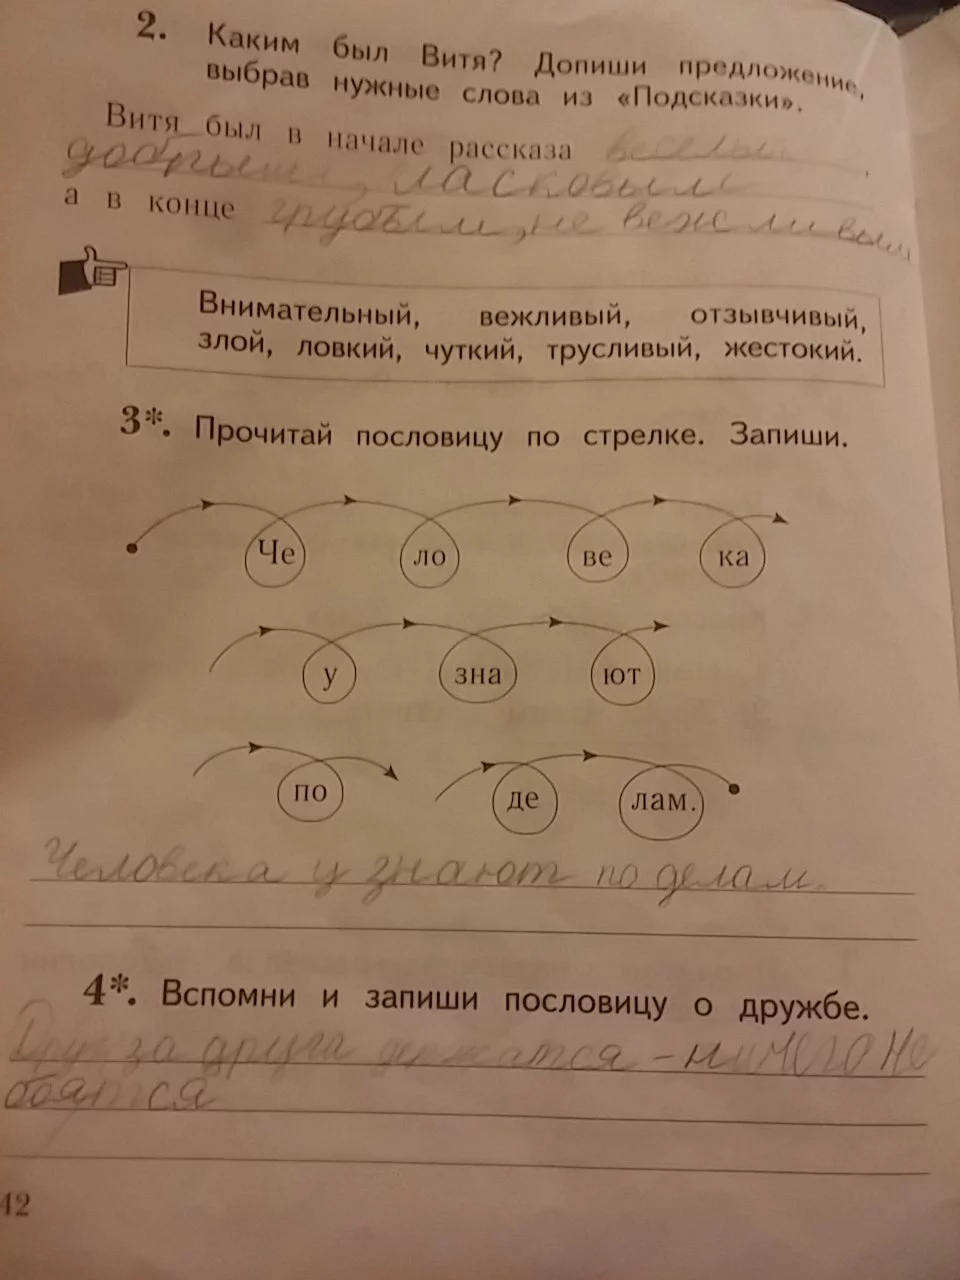 2. Каким был Витя? Допиши предложение,
выбрав нужные слова из «Подсказки».
Витя был в начале рассказа веселым
добрым, ласковым ,
а в конце грубым, не вежливым
Внимательный, вежливый, отзывчивый,
злой, ловкий, чуткий, трусливый, жестокий.
3*. Прочитай пословицу по стрелке. Запиши.
Че ло ве ка
у зна ют
по де лам.
Человека узнают по делам.
4*. Вспомни и запиши пословицу о дружбе.
Друг за друга держатся – ничего не
боятся
42